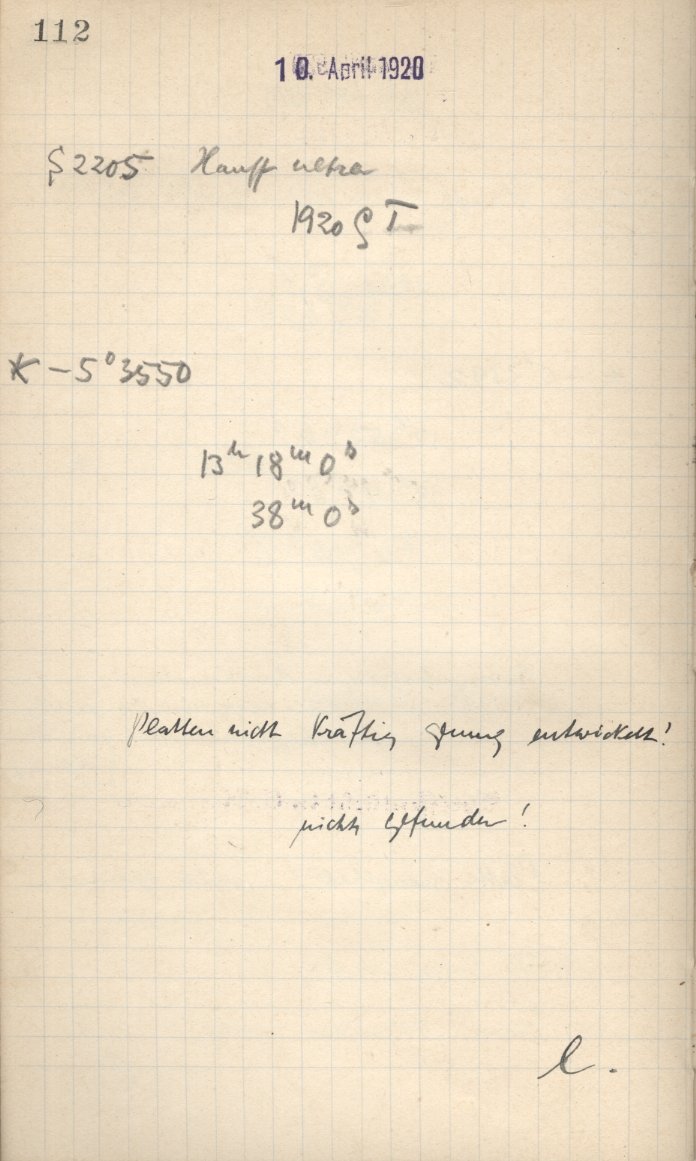 112
10. April 1920
S 2205 Hauff ultra
1920 S I
* -5° 3550
13h 18m 0s
38m 0s
Platten nicht kräftig genug entwickelt!
nichts gefunden!
l.